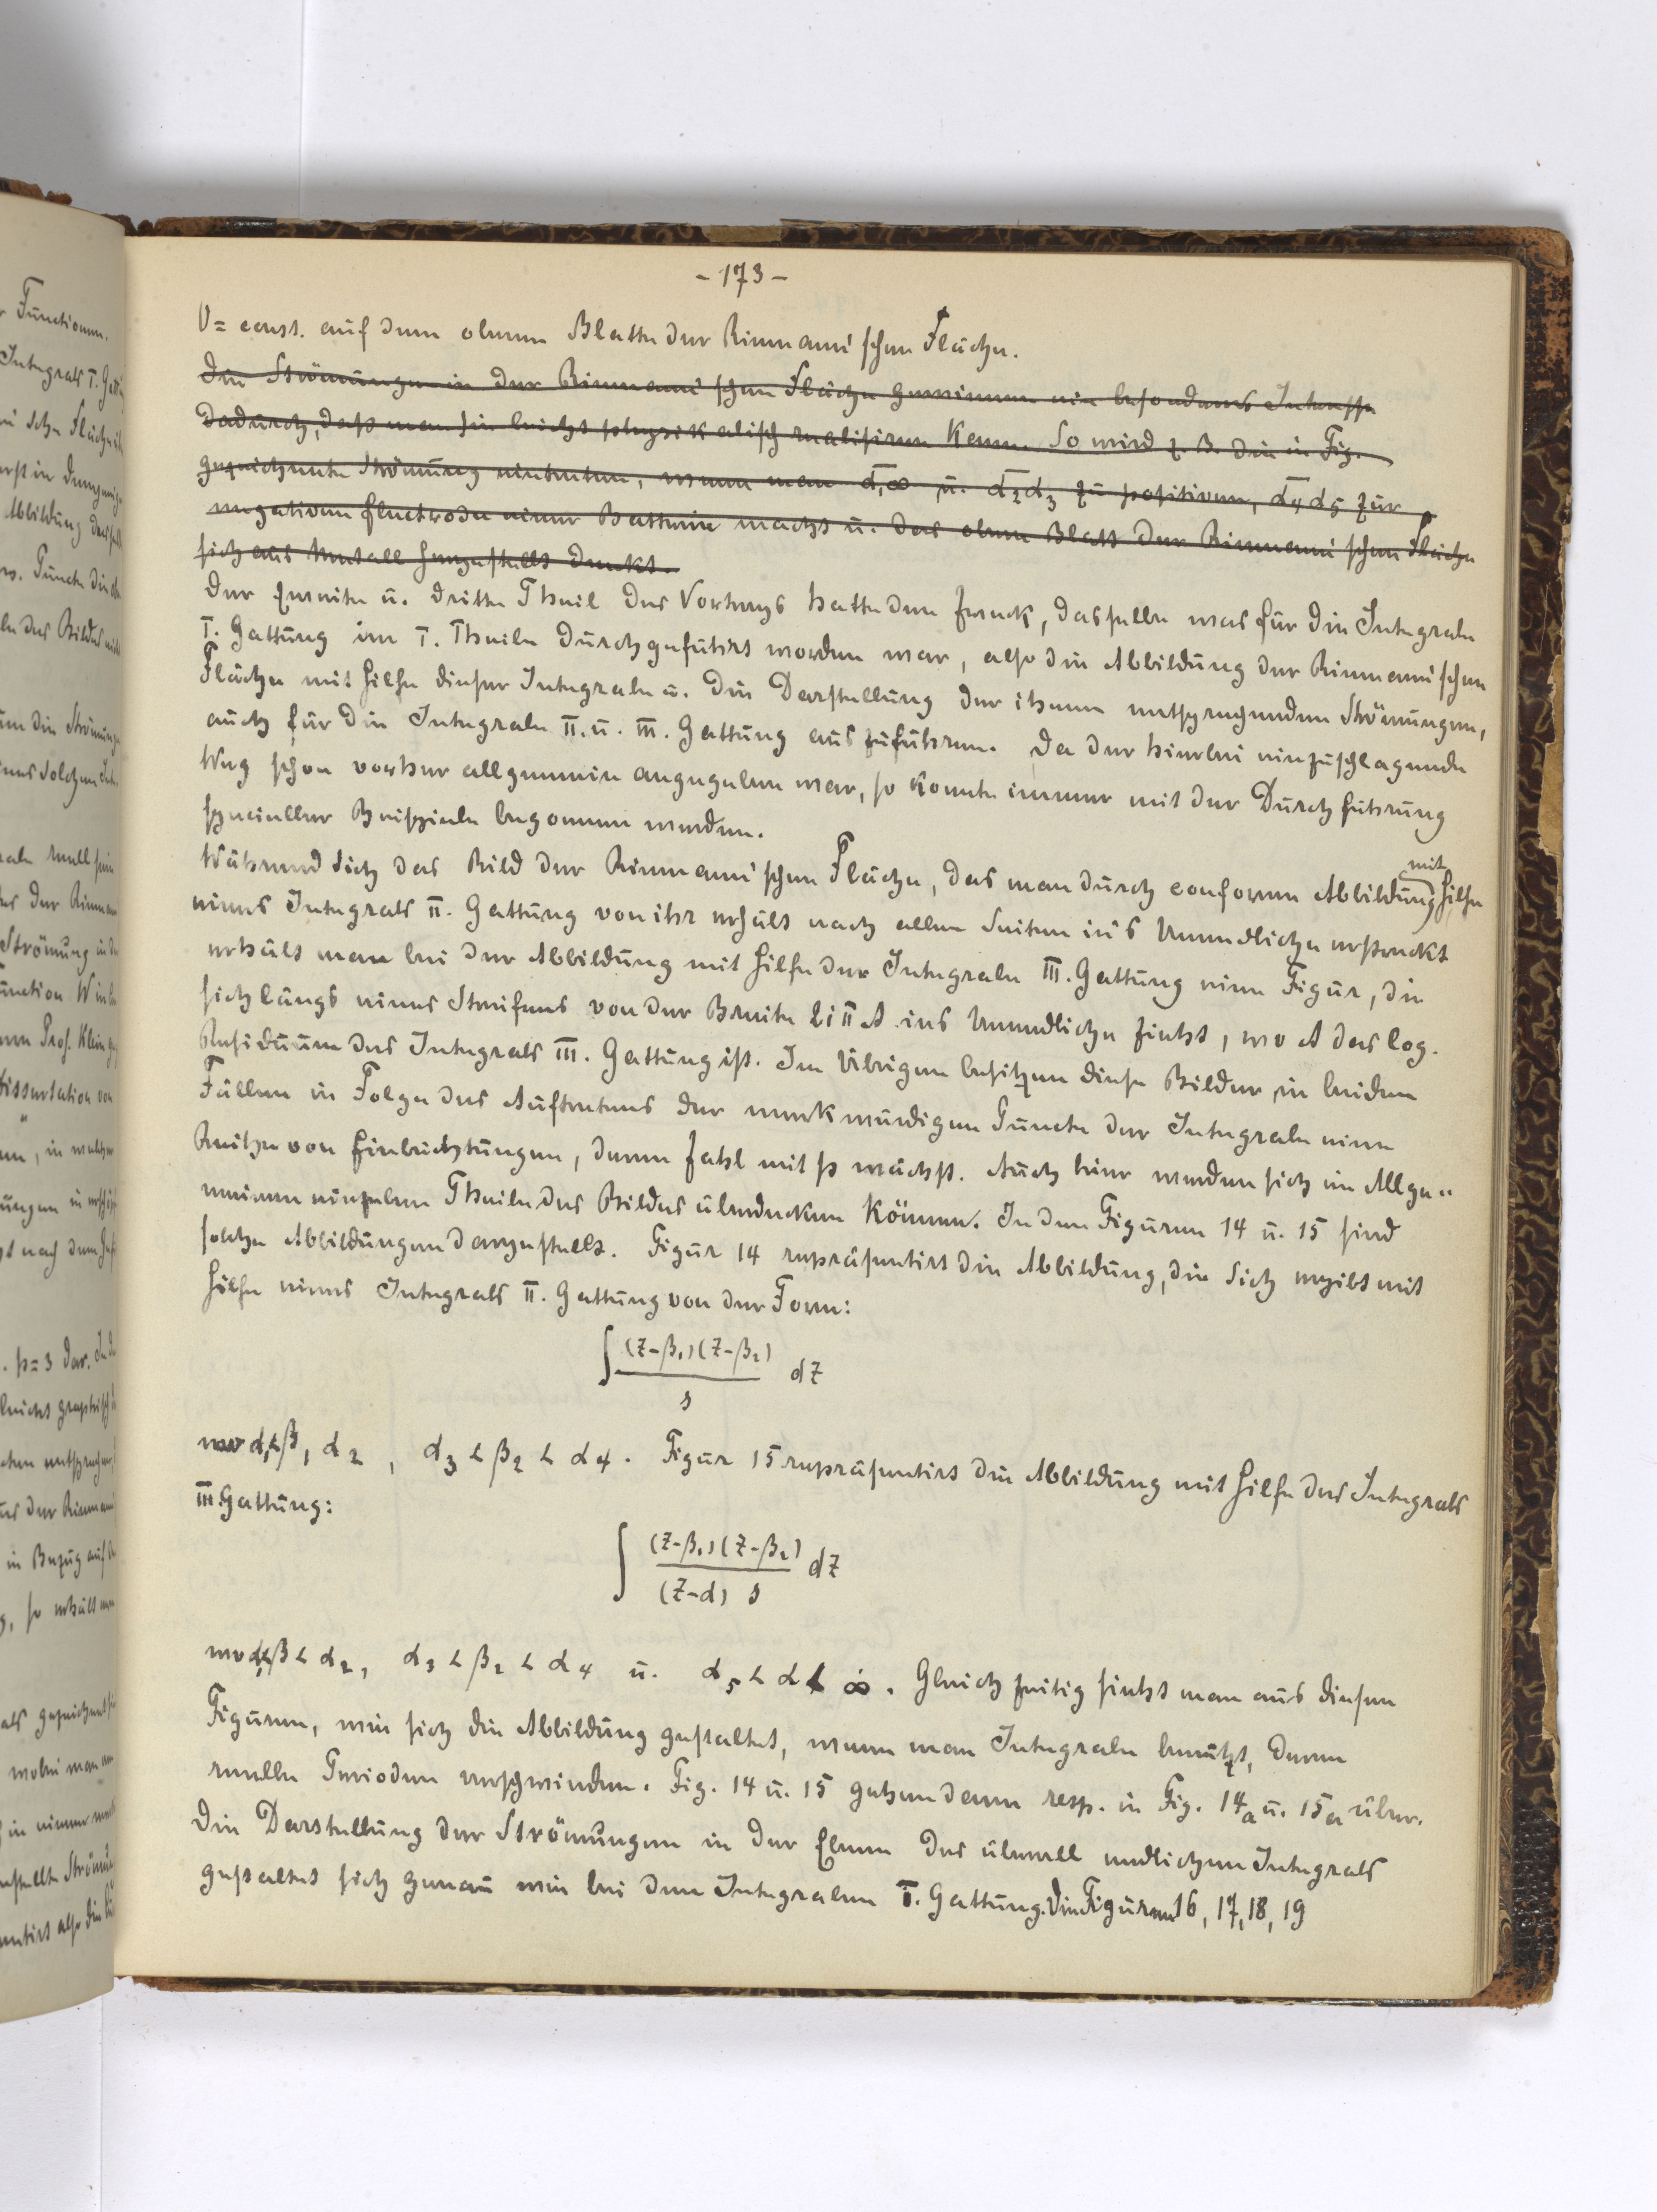 - 173 -
V = const. auf dem oberen Blatte der Riemann'schen Fläche.
Die Strömungen in der Riemann'schen Fläche gewinnen ein besonderes Interesse
dadurch, daß man sie leicht physikalisch realisiren kann. So wird z. B. die in Fig.
gezeichnete Strömung eintreten, wenn man α₁∞ u. α₂α₃ zu positiven, α₄α₅ zur
negativen Electrode einer Batterie macht u. das obere Blatt der Riemann'schen Fläche
sich aus Metall hergestellt denkt.
Der zweite u. dritte Theil des Vortrags hatte den Zweck, dasselbe was für die Integrale
I. Gattung im I. Theile durchgeführt worden war, also die Abbildung der Riemann'schen
Fläche mit Hilfe dieser Integrale u. die Darstellung der ihnen entsprechenden Strömungen,
auch für die Integrale II. u. III. Gattung auszuführen. Da der hierbei einzuschlagende
Weg schon vorher allgemein angegeben war, so konnte immer mit der Durchführung
specieller Beispiele begonnen werden.
Während sich das Bild der Riemann'schen Fläche, das man durch conforme Abbildung mit Hilfe
eines Integrals II. Gattung von ihr erhält nach allen Seiten in's Unendliche erstreckt
erhält man bei der Abbildung mit Hilfe der Integrale III. Gattung eine Figur, die
sich längs eines Streifens von der Breite 2iπA ins Unendliche zieht, wo A das log.
Residuum des Integrals III. Gattung ist. Im Übrigen besitzen diese Bilder in beiden
Fällen in Folge des Auftretens der merkwürdigen Puncte der Integrale eine
Reihe von Einbuchtungen, deren Zahl mit p wächst. Auch hier werden sich im Allge-
meinen einzelne Theile des Bildes überdecken können. In den Figuren 14 u. 15 sind
solche Abbildungen dargestellt. Figur 14 repräsentirt die Abbildung, die sich ergibt mit
Hilfe eines Integrals II. Gattung von der Form:
∫ (z-β₁)(z-β₂) / s dz
wo α₁<β₁ α₂, α₃ < β₂ < α₄. Figur 15 repräsentirt die Abbildung mit Hilfe des Integrals
III. Gattung:
∫ (z-β₁)(z-β₂) / (z-α) s dz
wo α₁<β < α₂, α₃ < β₂ < α₄ u. α₅ < α < ∞. Gleichzeitig sieht man aus diesen
Figuren, wie sich die Abbildung gestaltet, wenn man Integrale benützt, deren
reelle Perioden verschwinden. Fig. 14 u. 15 gehen dann resp. in Fig. 14a u. 15a über.
Die Darstellung der Strömungen in der Ebene des überall endlichen Integrals
gestaltet sich genau wie bei den Integralen I. Gattung. Die Figuren 16, 17, 18, 19